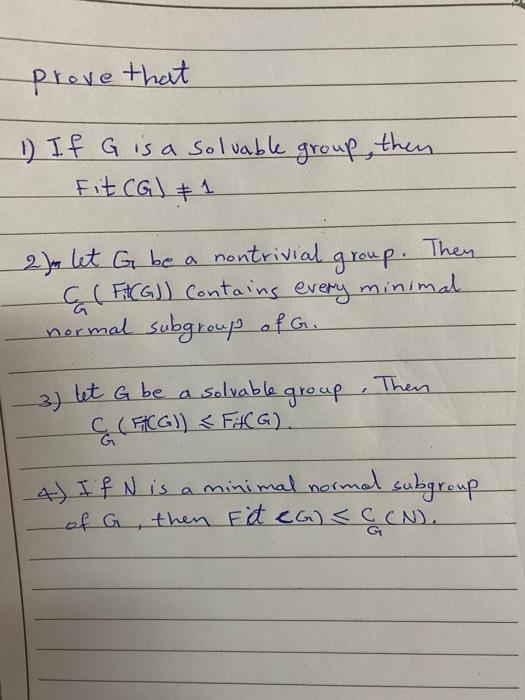 prove that
1) If G is a solvable group, then
Fit(G) ≠ 1
2) let G be a nontrivial group. Then
C_G(Fit(G)) Contains every minimal
normal subgroup of G.
3) let G be a solvable group, Then
C_G(Fit(G)) ≤ Fit(G).
4) If N is a minimal normal subgroup
of G, then Fit(G) ≤ C_G(N).